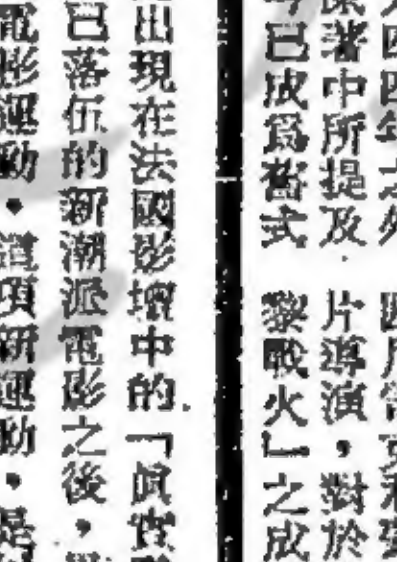 四四年之外
著中所提及
已成爲舊式
片導演，對於
黎戰火」之成
出現在法國影壇中的「眞實
已落伍的新潮派電影之後，
電影運動，這項新運動，是